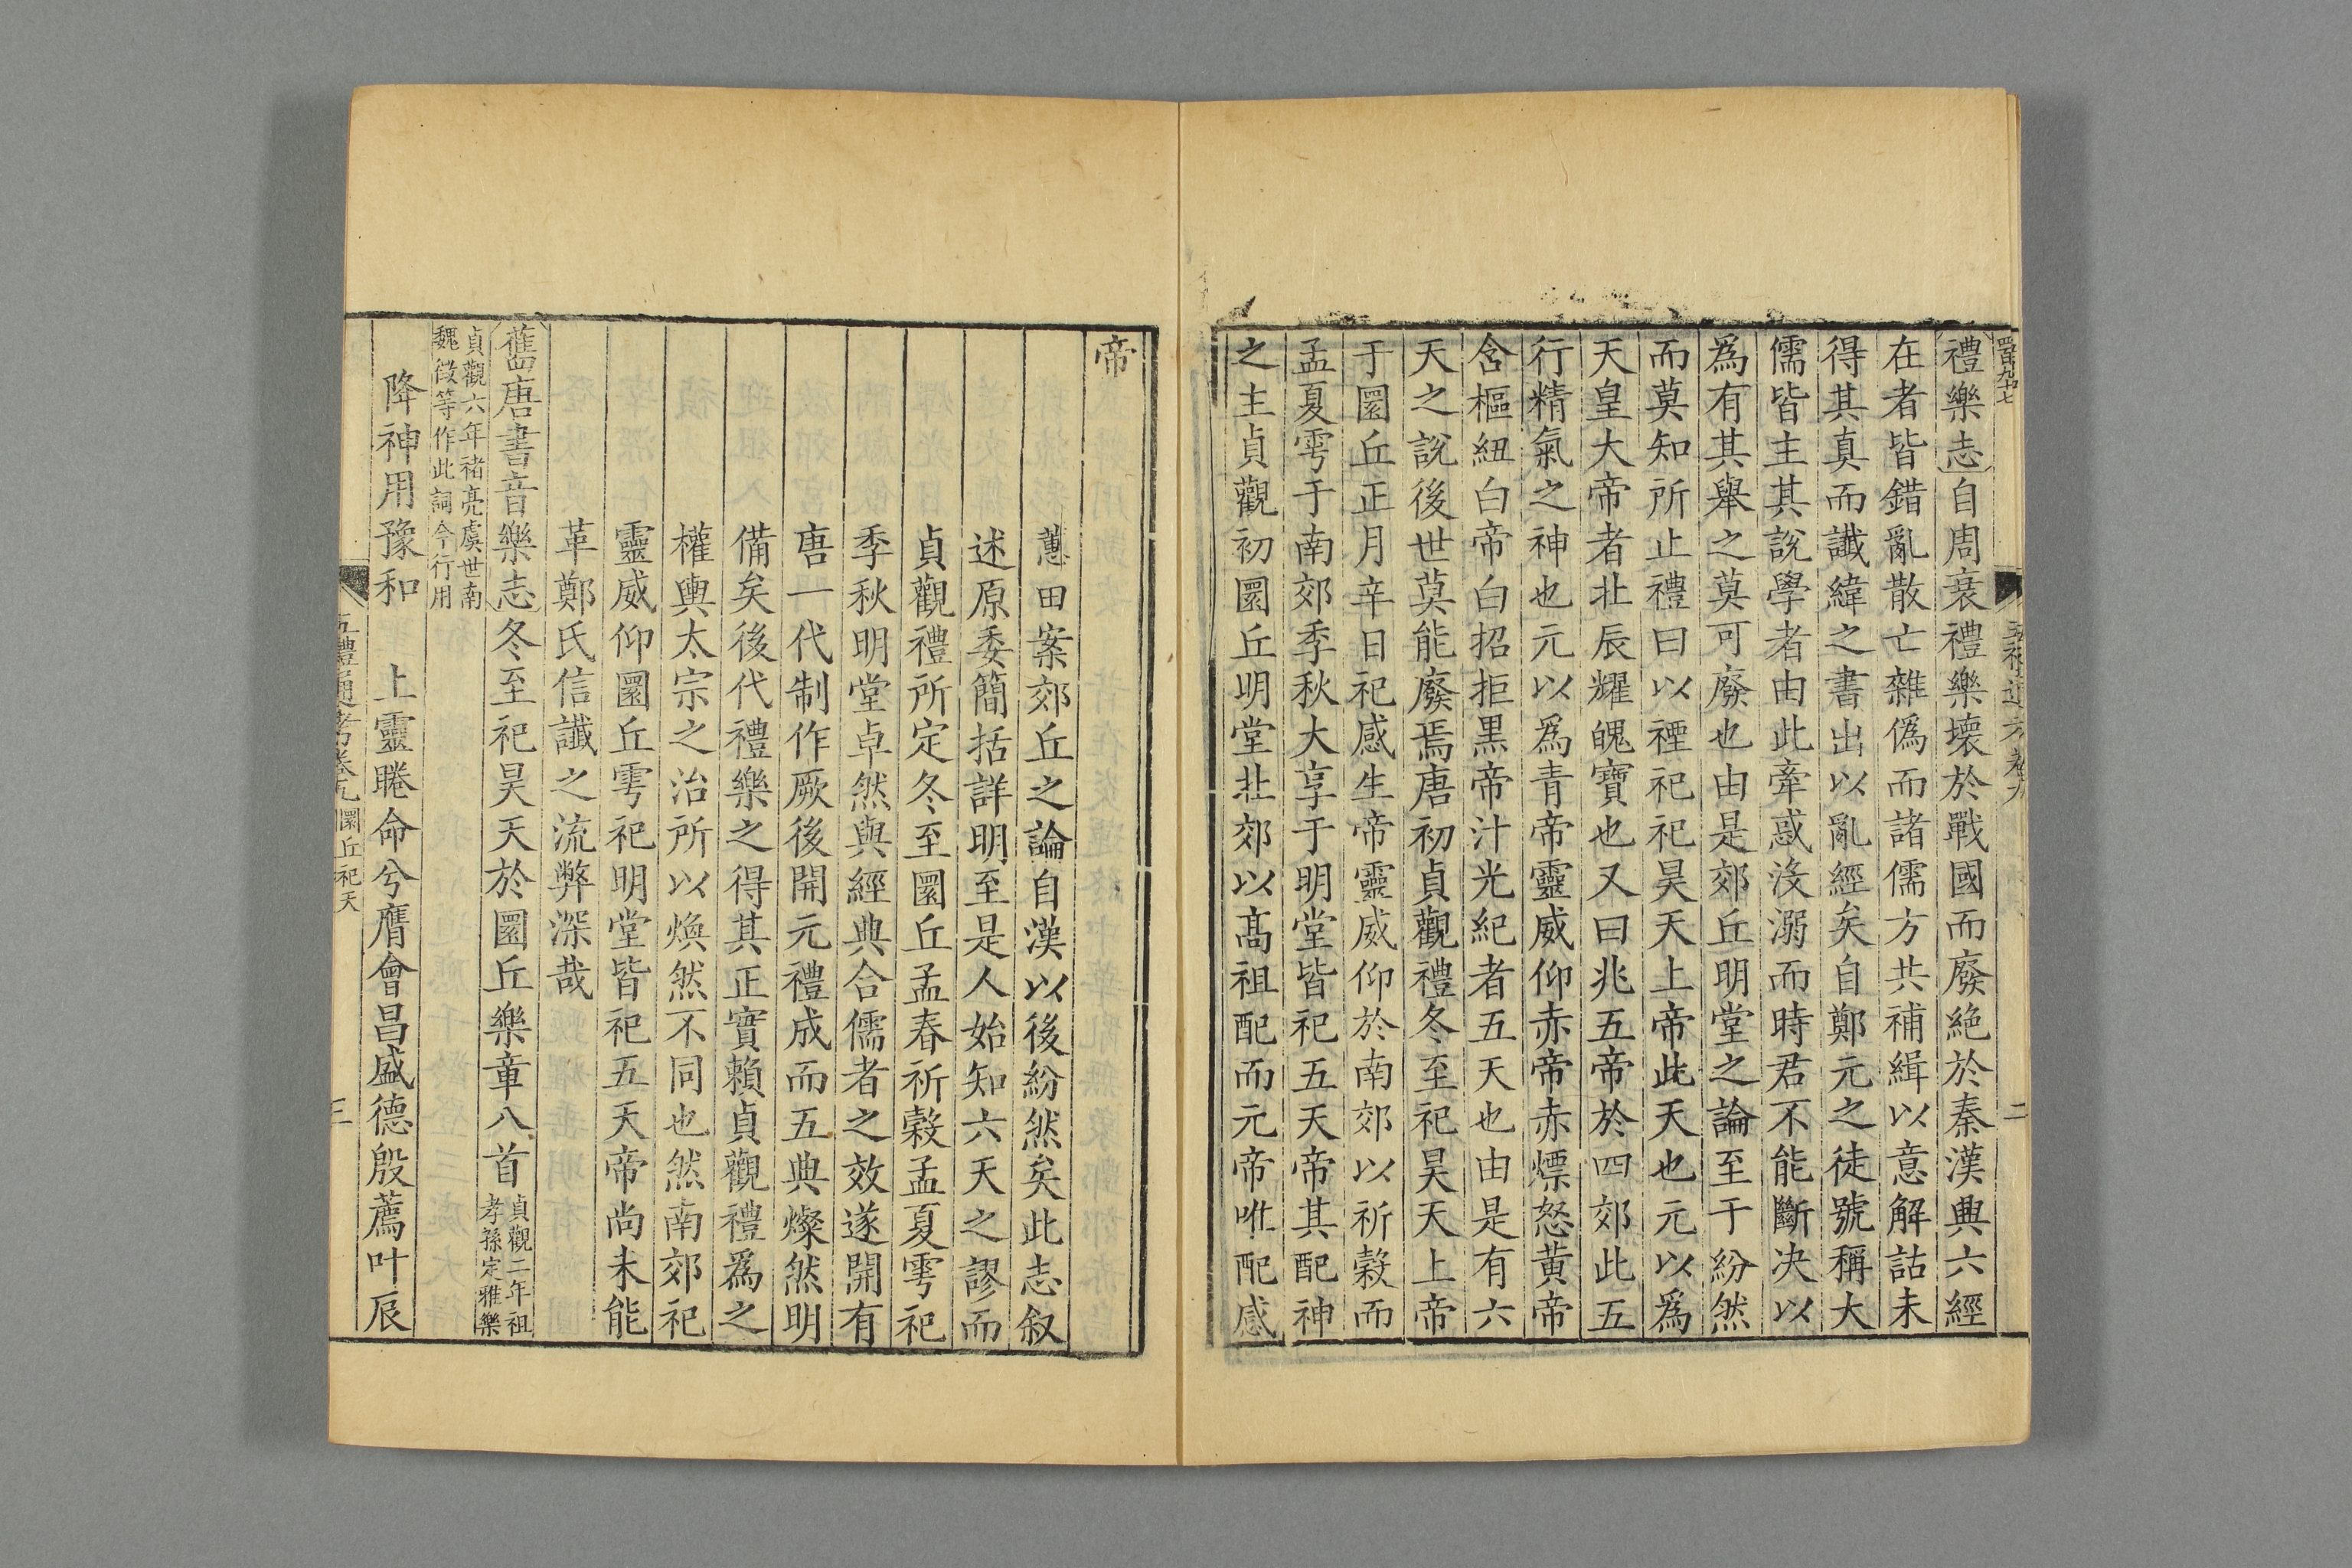 禮樂志自周衰禮樂壞於戰國而廢絶於秦漢興六經
在者皆錯亂散亡雜僞而諸儒方共補緝以意解詁未
得其真而讖緯之書出以亂經矣自鄭元之徒號稱大
儒皆主其說學者由此牽惑没溺而時君不能斷決以
爲有其舉之莫可廢也由是郊丘明堂之論至于紛然
而莫知所止禮曰以禋祀祀昊天上帝此天也元以爲
天皇大帝者北辰耀魄寶也又曰兆五帝於四郊此五
行精氣之神也元以爲青帝靈威仰赤帝赤熛怒黄帝
含樞紐白帝白招拒黑帝汁光紀者五天也由是有六
天之說後世莫能廢焉唐初貞觀禮冬至祀昊天上帝
于圜丘正月辛日祀感生帝靈威仰於南郊以祈穀而
孟夏雩于南郊季秋大享于明堂皆祀五天帝其配神
之主貞觀初圜丘明堂北郊以高祖配而元帝唯配感
帝
蕙田案郊丘之論自漢以後紛然矣此志叙
述原委簡括詳明至是人始知六天之謬而
貞觀禮所定冬至圜丘孟春祈穀孟夏雩祀
季秋明堂卓然與經典合儒者之效遂開有
唐一代制作厥後開元禮成而五典燦然明
備矣後代禮樂之得其正實賴貞觀禮爲之
權輿太宗之治所以煥然不同也然南郊祀
靈威仰圜丘雩祀明堂皆祀五天帝尚未能
革鄭氏信讖之流弊深哉
舊唐書音樂志冬至祀昊天於圜丘樂章八首
貞觀二年祖
孝孫定雅樂
貞觀六年褚亮虞世南
魏徵等作此詞今行用
降神用豫和 上靈睠命兮膺會昌盛德殷薦叶辰
五禮通考卷九 圜丘祀天
三
二